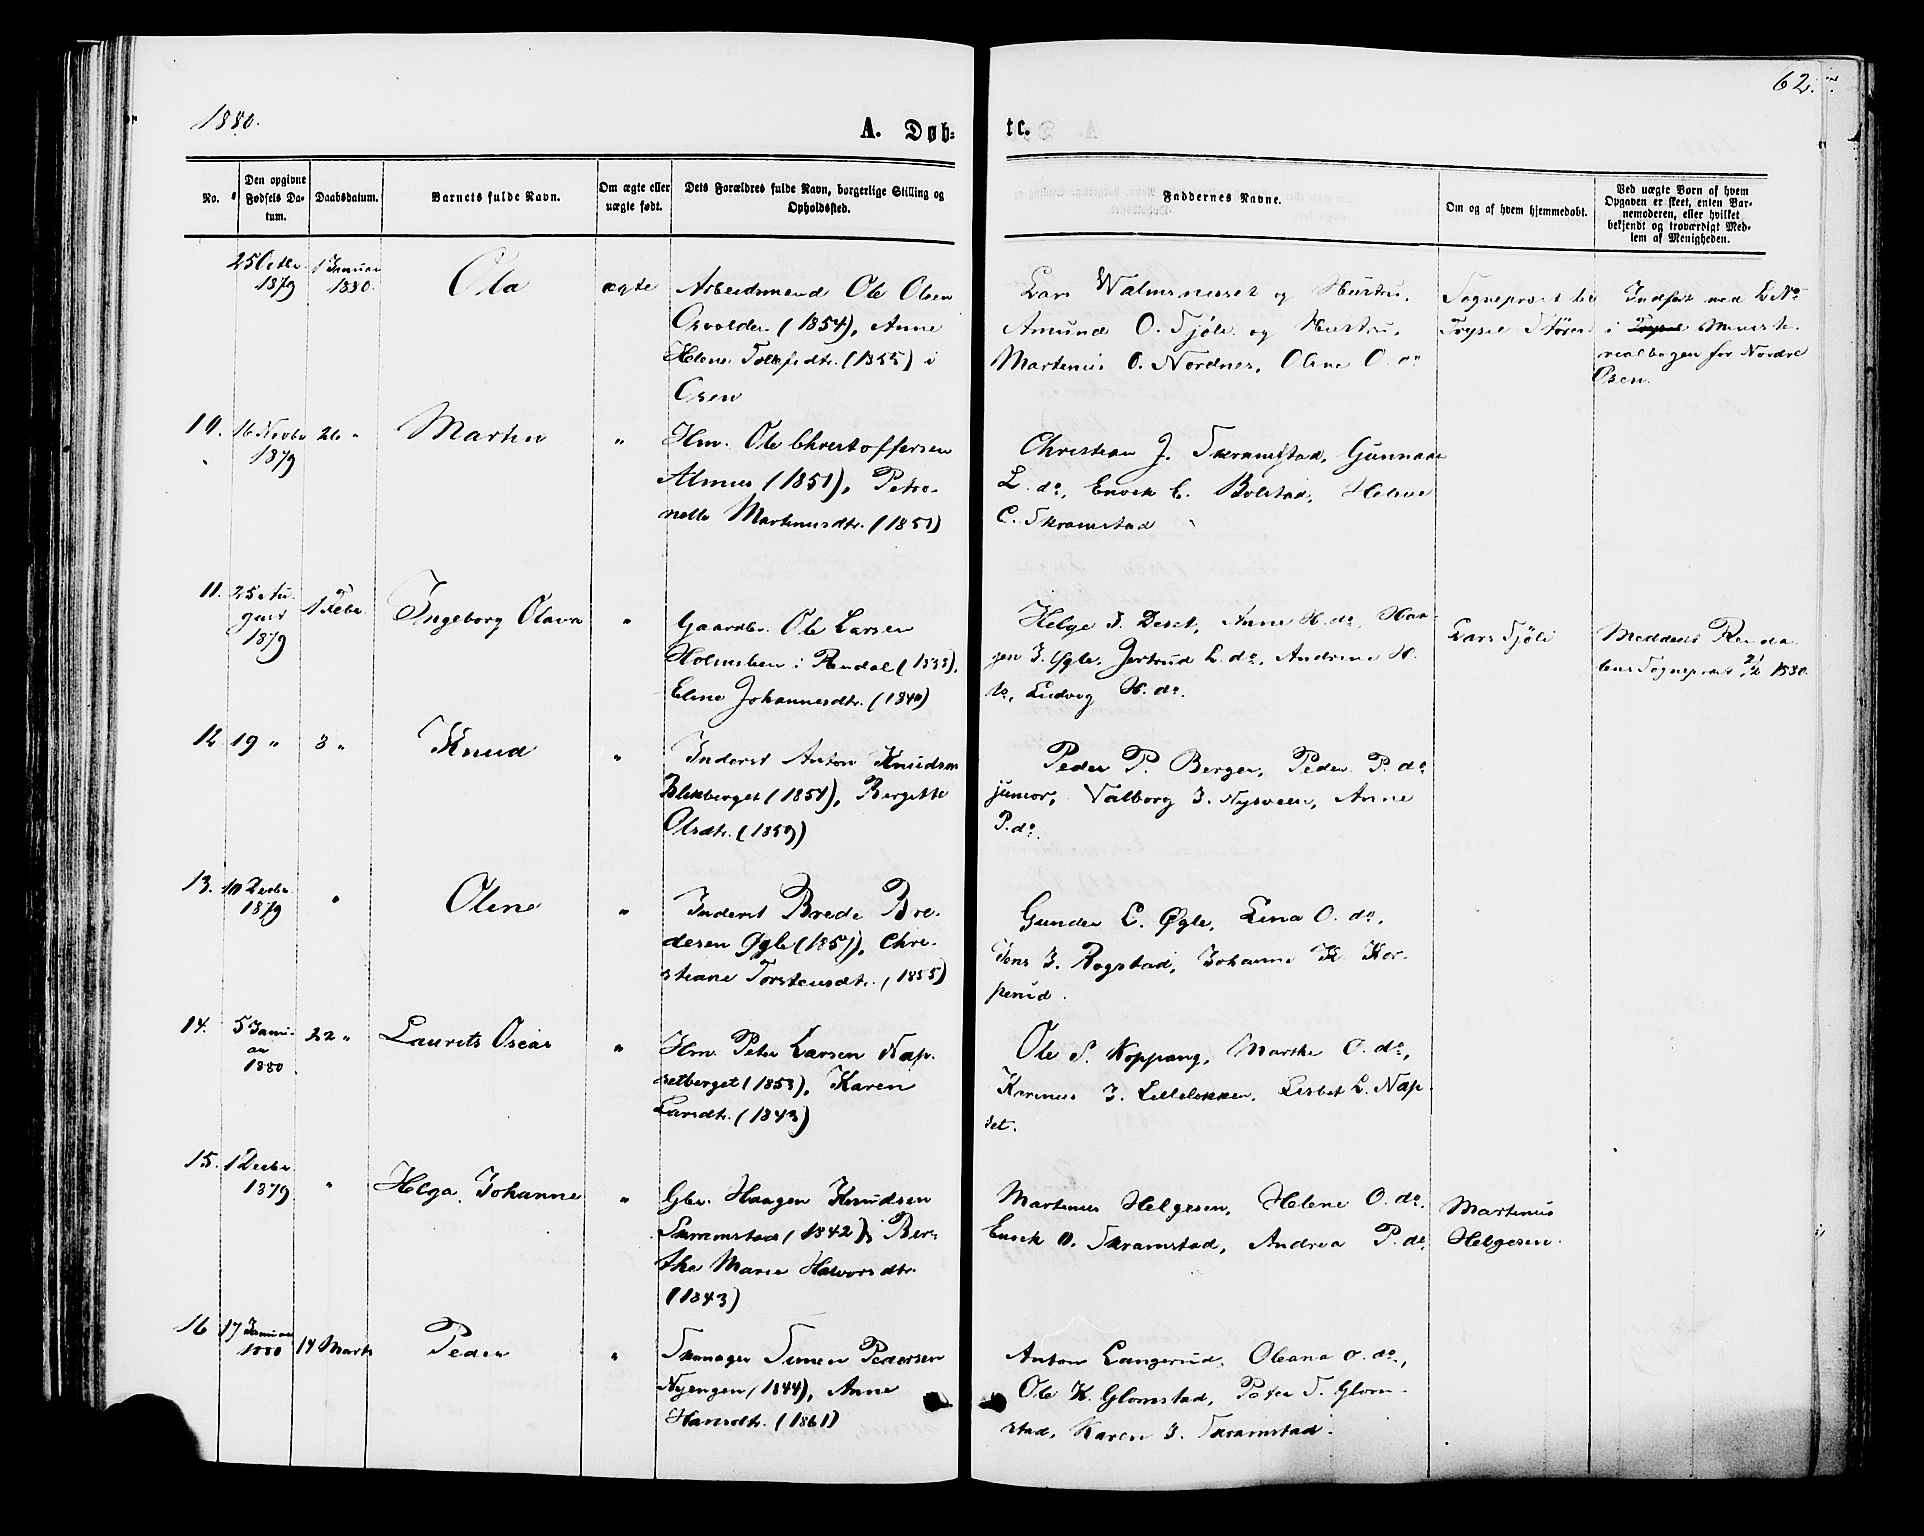 62.
1880.
A. Døb-
te.
No.
Den opgivne Fødsels Da-
tum.
Daabsdatum.
Barnets fulde Navn.
Om ægte eller
uægte født.
Dets Forældres fulde Navn, borgerlige Stilling og
Opholdssted.
Faddernes Navne.
Om og af hvem hjemmedøbt.
Ved uægte Born af hvem
Opgaven er skeet, enten Bar-
nemoderen, eller hvilket
bekjendt og troværdigt Med-
lem af Menigheden.
25 Octbr.
1879
1 Januar
1880.
Ola
ægte
Arbeidsmand Ole Olsen
(1854), Anne
Helene (1855) i
Osen
Lars og Hustru,
Amund O. Tjöle og Hustru,
Martenius O. Nordnes, Oline O. do
Sogneprest
Trysel
Indført ved L No
i Ministe-
rialbogen for Nordre
Osen.
10.
16 Novbr
1879
26 "
Martin
"
Hm. Ole Christoffersen
(1851), Petro-
nelle Martinusdtr. (1851)
Christian J. Skramstad, Gunnar
L. do, Enock C. Bolstad, Helene
C. Skramstad
11.
25 Au-
gust
1879
1 Febr.
Ingeborg Olava
"
Gaardbr. Ole Larsen
i Rendal (1838),
Eline Johannesdtr. (1840)
Helge J. Deset, Anne H. do, Haa-
gen J. Øgle, Jertrud L. do, Andrine H.
do, Ludvig H. do.
Lars Tjöle
Meddelt Renda-
lens Sogneprest 21/2 1880.
12
19 "
8 "
Knud
"
Inderst Anton Knudsen
Blekberget (1854), Bergitte
Olsdtr. (1859)
Peder P. Berger, Peder P. do
junior, Valborg J. Nysveen, Anne
P. do.
13.
10 Decbr.
1879
"
Oline
"
Inderst Brede Bre-
desen Øgle (1851), Chri-
stiane Torstensdtr. (1855)
Gunder C. Øgle, Lina O. do,
Jens J. Rogstad, Johanne K. Kor-
perud.
14.
5 Janu-
ar
1880
22 "
Laurits Oscar
"
Hm. Peter Larsen Nap-
setberget (1853), Karen
Larsdtr. (1843)
Ole S. Koppang, Marthe O. do,
Karenus J. Lilleløkken, Lisbet L. Nap-
set.
15.
1 Decbr.
1879
"
Helga Johanne
"
Gbr. Haagen Knudsen
Skramstad (1842), Ber-
the Marie Halvorsdtr.
(1843)
Martinus Helgesen, Helene O. do.
Enock O. Skramstad, Andrea P. do,
Martinus
Helgesen.
16
17 Januar
1880
14 Marts
Peder
"
Skomager Simen Pedersen
Nyengen (1844), Anne
Hansdtr. (1861)
Anton Langerud, Oleana O. do,
Ole K. Glomstad, Peter S. Glom-
stad, Karen J. Skramstad.